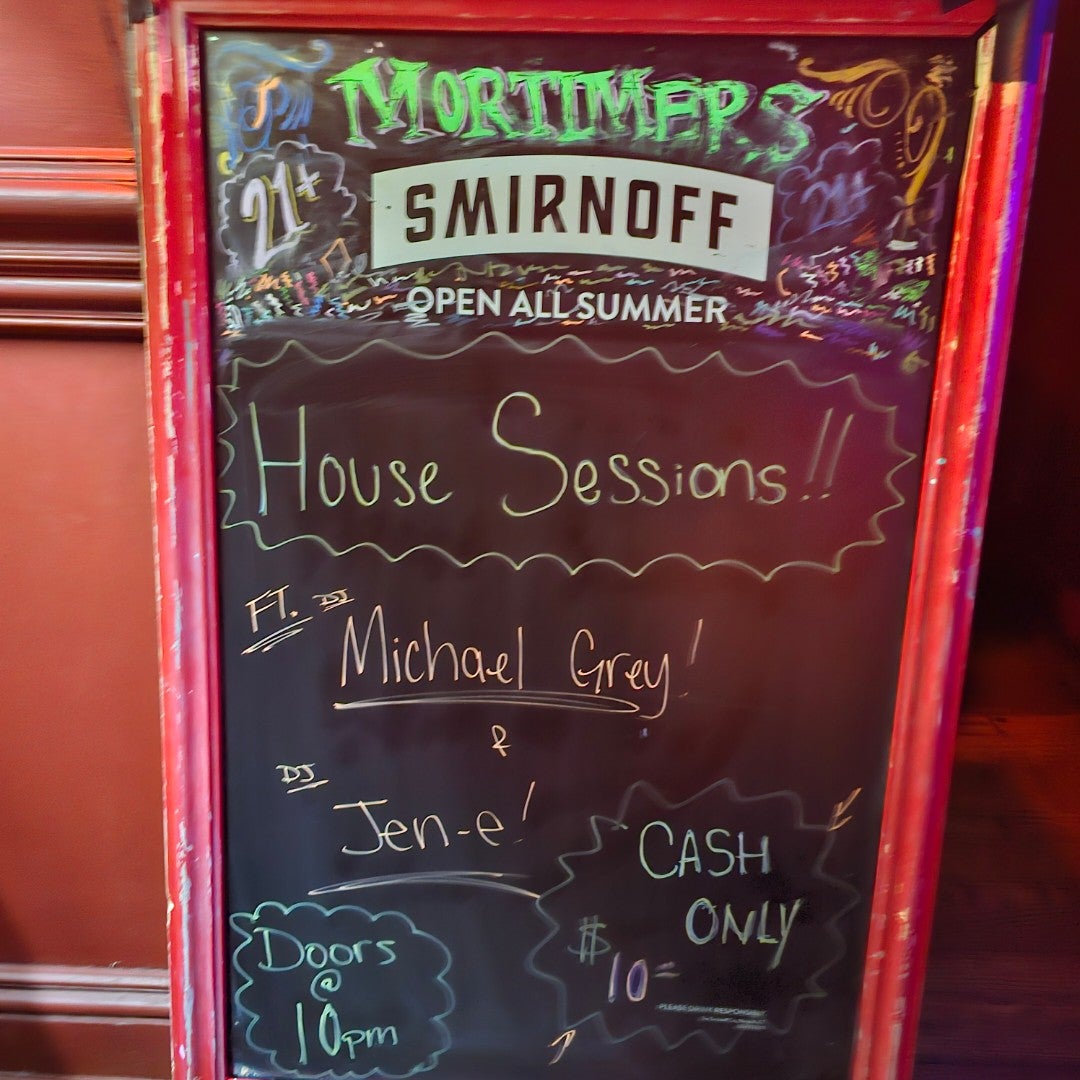 MORTIMERS
21+
SMIRNOFF
21+
OPEN ALL SUMMER
House Sessions!!
FT. DJ
Michael Grey!
&
DJ
Jen-e!
CASH
ONLY
$10=
Doors
@
10pm
PLEASE DRINK RESPONSIBLY